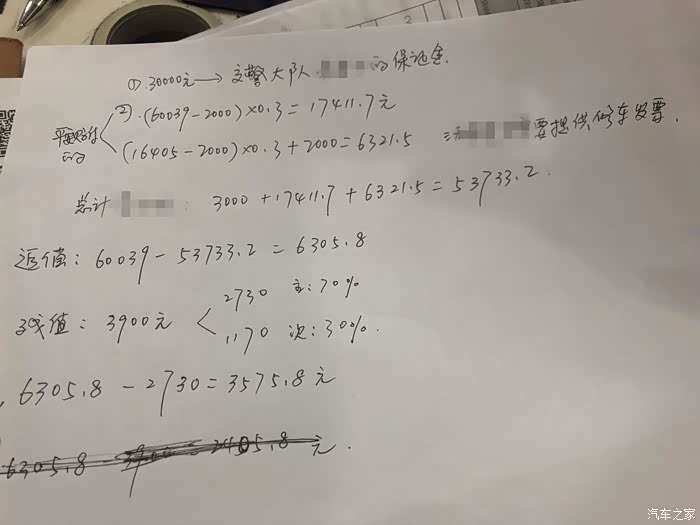 ①.30000元→交警大队 的保证金.
②.(60039-2000)×0.3=17411.7元
平安赔付的
(16405-2000)×0.3+2000=6321.5
要提供修车发票.
总计 : 3000+17411.7+6321.5=53733.2.
返值: 60039-53733.2=6305.8
残值: 3900元
2730 主:70%
1170 次:30%.
6305.8-2730=3575.8元
6305.8-3900=2405.8元.
汽车之家